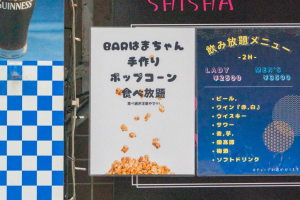 GUINNESS
SHISHA
BARはまちゃん
手作り
ポップコーン
食べ放題
飲み放題メニュー
-2H-
LADY MEN'S
¥2500 ¥2800
・ビール,
・ワイン「赤,白」
・ウイスキー
・サワー
・麦,芋,
・梅酒
・ソフトドリンク